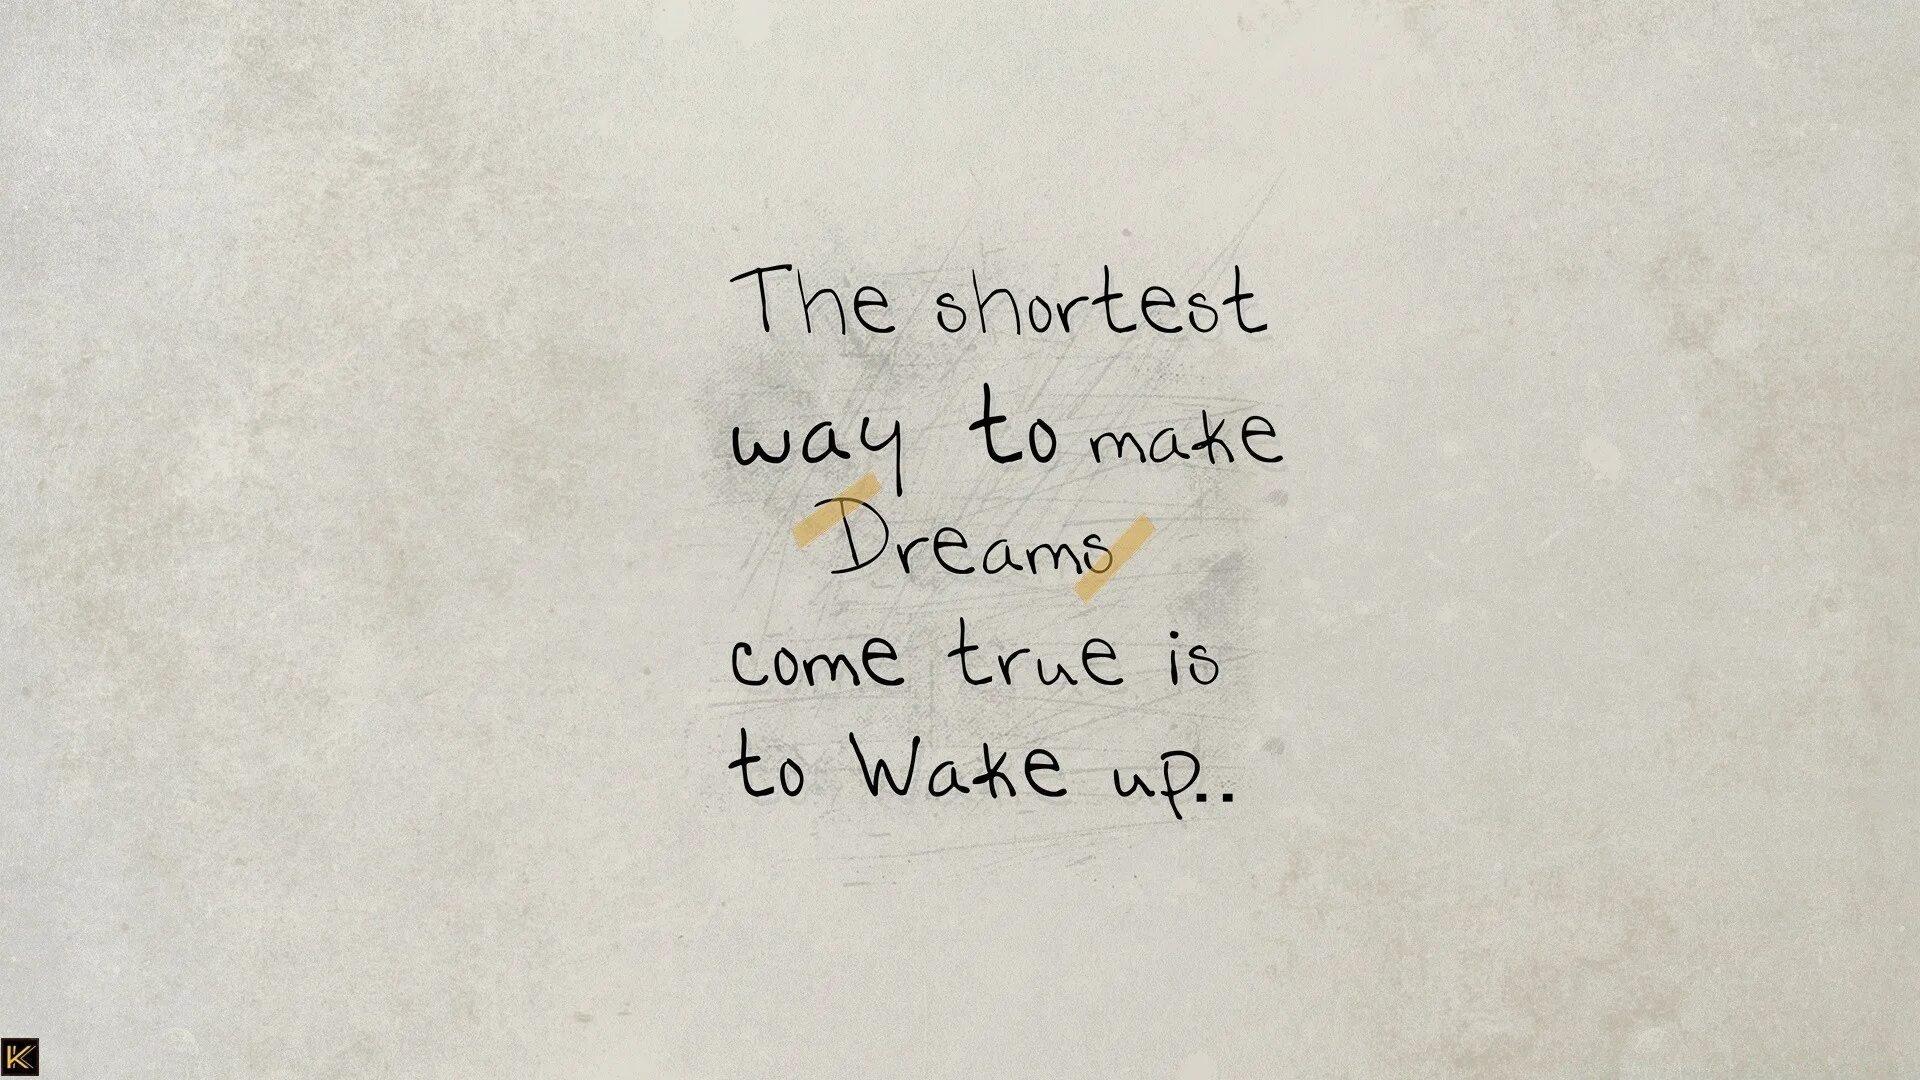 The shortest
way to make
Dreams
come true is
to Wake up..
K